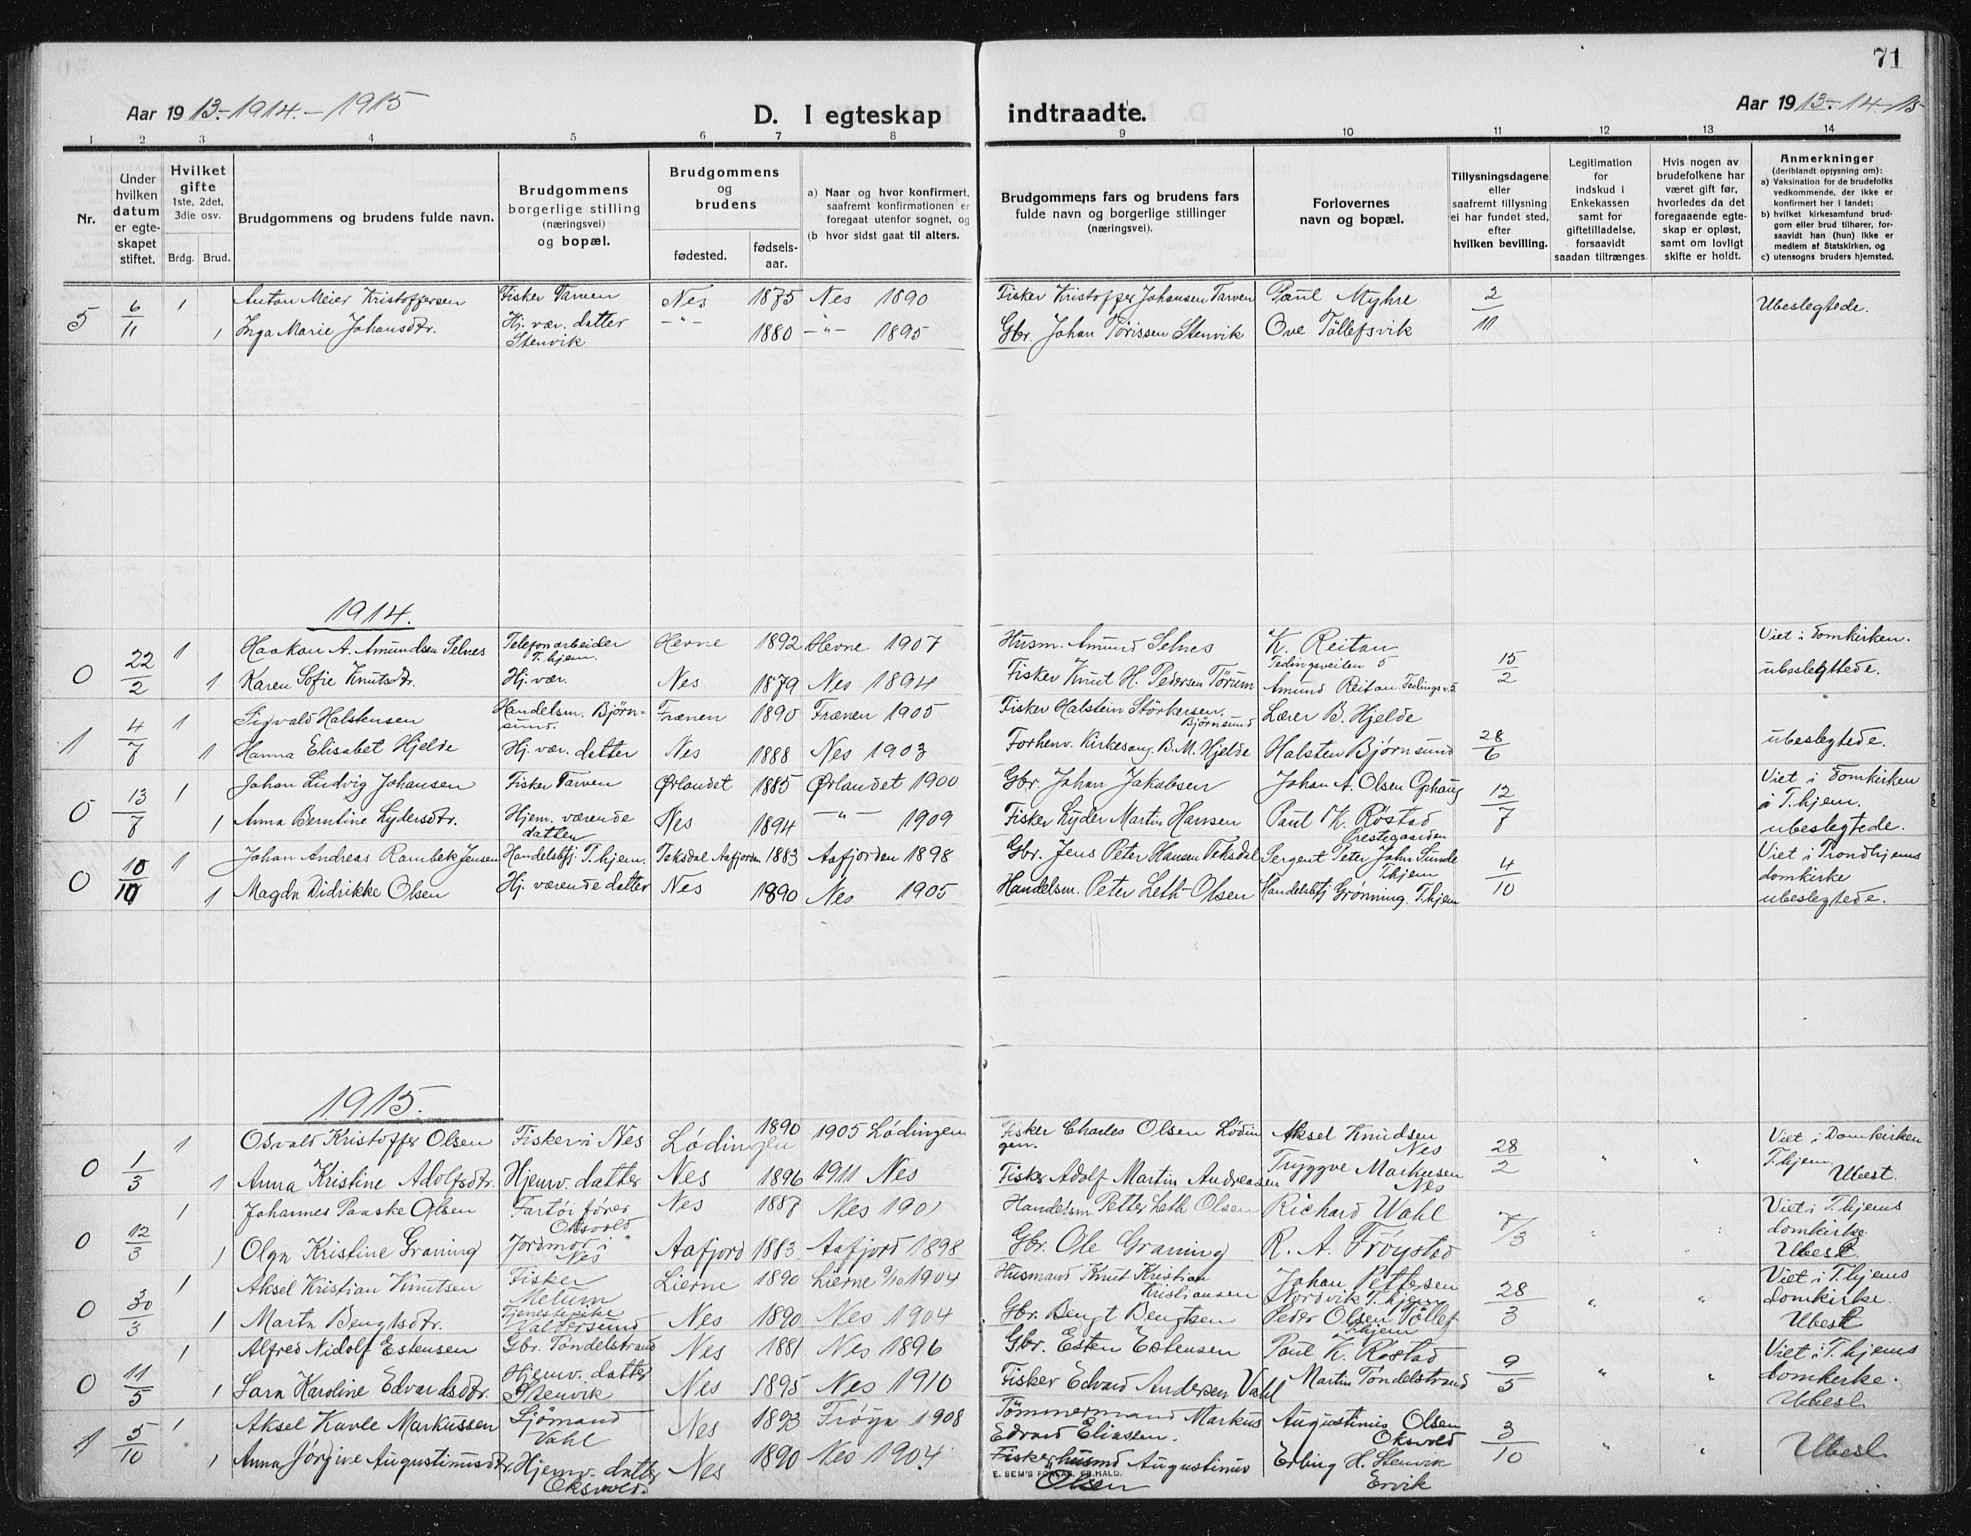 71
Aar 1913-1914.-1915
D. I egteskap indtraadte.
Aar 1913-14-15
1 2 3 4 5 6 7 8 9 10 11 12 13 14
Nr.
Under hvilken datum er egteskapet stiftet.
Hvilket gifte 1ste, 2det, 3die osv.
Brdg. Brud.
Brudgommens og brudens fulde navn.
Brudgommens borgerlige stilling (næringsvei) og bopæl.
Brudgommens og brudens
fødested. fødsels-aar.
a) Naar og hvor konfirmert, saafremt konfirmationen er foregaat utenfor sognet, og
(b hvor sidst gaat til alters.
Brudgommens fars og brudens fars fulde navn og borgerlige stillinger (næringsvei).
Forlovernes navn og bopæl.
Tillysningsdagene eller saafremt tillysning ei har fundet sted, efter hvilken bevilling.
Legitimation for indskud i Enkekassen samt for giftetilladelse, forsaavidt saadan tiltrænges.
Hvis nogen av brudefolkene har været gift før, hvorledes da det foregaaende egteskap er opløst, samt om lovligt skifte er holdt.
Anmerkninger (deriblandt opjysning om):
a) Vaksination for de brudefolks vedkommende, der ikke er konfirmert her i landet;
b) hvilket kirkesamfund brudgom eller brud tilhører, forsaavidt han (hun) ikke er medlem af Statskirken, og
c) utensogns bruders hjemsted.
5 6/11 1 Anton Meier Kristoffersen Fisker Tarven Nes 1875 Nes 1890 Fisker Kristoffer Johansen Tarven Paul Myhre 2/11 Ubeslegtede.
1 Inga Marie Johansdtr. Hj. vær. datter Stenvik -"- 1880 -"- 1895 Gbr. Johan Tørissen Stenvik Ove Tøllefsvik
1914.
0 22/2 1 Haakon A. Amundsen Selnes Telefonarbeider T.hjem. Hevne 1892 Hevne 1907 Husm. Amund Selnes K. Reitan 15/2 Viet i Domkirken.
1 Karen Sofie Knutsdtr. Hj. vær. Nes 1879 Nes 1894 Fisker Knut H. Pedersen Tørum Amund Reitan ubeslegttede.
1 4/7 1 Sigvald Halstensen Handelsm. Bjørnsund. Frænen 1890 Frænen 1905 Fisker Halstein Størkersen. Bjørnsund Lærer B. Hjelde 28/6
1 Hanna Elisabet Hjelde Hj. vær. datter Nes 1888 Nes 1903 Forhenv. Kirkesang. B. M. Hjelde Halsten Bjørnsund ubeslegtede.
0 13/7 1 Johan Ludvig Johansen Fisker Tarven Ørlandet 1885 Ørlandet 1900 Gbr. Johan Jakobsen Johan A. Olsen Ophaug 12/7 Viet i Domkirken
1 Anna Berntine Lydersdtr. Hjem. værende datter Nes 1894 -"- 1909 Fisker Lyder Martin Hansen Paul K. Røstad Prestegaarden i T.hjem. ubeslegtede.
0 10/10 1 Johan Andreas Rambek Jensen Handelsbtj. T.hjem. Teksdal Aafjorden 1883 Aafjorden 1898 Gbr. Jens Peter Hansen Teksdal Sergent Peter John Sunde T.hjem 4/10 Viet i Trondhjems domkirke
1 Magda Didrikke Olsen Hj. værende datter Nes 1890 Nes 1905 Handelsm. Peter Leth-Olsen Handelsbtj Grønning. T.hjem ubeslegtede.
1915.
0 1/3 1 Osvald Kristoffer Olsen Fisker i Nes Lødingen 1890 1905 Lødingen Fisker Charles Olsen Lødingen. Aksel Knudsen Nes 28/2 " " Viet i Domkirken T.hjem.
1 Anna Kristine Adolfsdtr. Hjemv. datter Nes 1896 1911 Nes Fisker Adolf Martin Andreasen Tryggve Markusen Nes Ubesl.
0 12/3 1 Johannes Paaske Olsen Fartøifører Oksvold Nes 1887 Nes 1901 Handelsm. Petter Leth Olsen Richard Wahl 7/3 " " Viet i T.hjems domkirke
1 Olga Kristine Graning Jordmor i Nes Aafjord 1883 Aafjord 1898 Gbr. Ole Graning R. A. Frøystad Ubesl.
0 30/3 1 Aksel Kristian Knutsen Fisker Lierne 1890 Lierne 1904 Husmand Knut Kristian Kristiansen Johan Pettersen Nordvik T.hjem 28/3 " " Viet i T.hjems domkirke.
1 Marta Bengtsdtr. Valsersund Nes 1890 Nes 1904 Gbr. Bengt Bengtsen Peder Olsen T.hjem Ubesl
0 11/5 1 Alfred Nidolf Estensen Gbr. Tøndelstrand Nes 1881 Nes 1896 Gbr. Esten Estensen Paul K. Røstad 9/5 " " Viet i T.hjems domkirke.
1 Sara Karoline Edvardsdtr. Hjemv. datter Stenvik Nes 1895 Nes 1910 Fisker Edvard Andersen Vahl Martin Tøndelstrand Ubesl.
1 5/10 1 Aksel Kavle Markussen Sjømand Vahl Nes 1893 Frøya 1908 Tømmermand Markus Edvard Eliassen. Augustinus Olsen Oksvold 3/10 " " Ubesl
1 Anna Jørgine Augustinusdtr. Hjemv. datter Oksvold. Nes 1890 Nes 1904. Fisker husmd Augustinus Olsen Erling H. Stenvik Ervik
E. SEM'S FORLAG. FR.HALD.